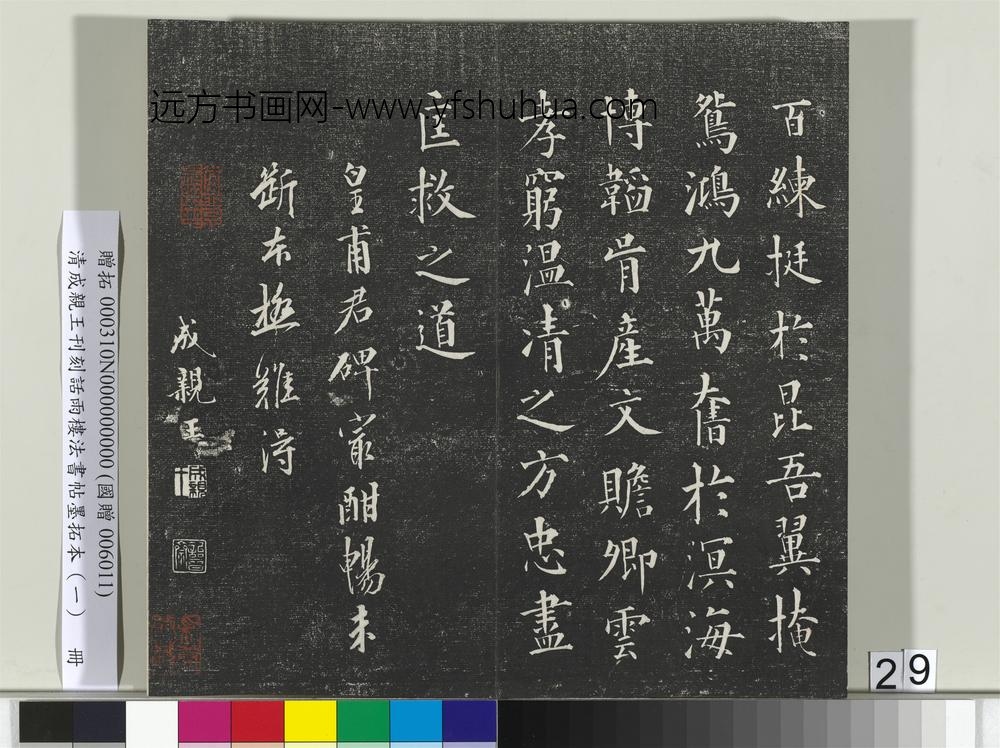 百練挺於昆吾翼掩
鴛鴻九萬奮於溟海
博韜肯產文贍卿雲
孝窮溫凊之方忠盡
匡救之道
皇甫君碑最酣暢未
斷本極難得
成親王
远方书画网-www.yfshuhua.com
贈拓 000310N000000000(國贈 006011)
清成親王刊刻話雨樓法書帖墨拓本(一) 冊
29